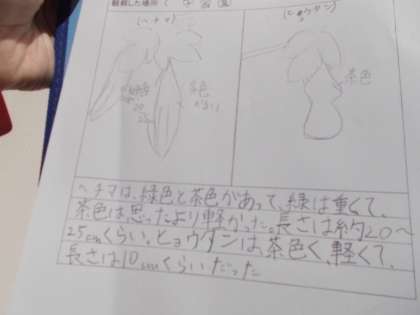 観察した場所(
(ヘチマ)
(ヒョウタン)
茶色
ヘチマは、緑色と茶色があって、緑は重くて、
茶色は思ったより軽かった。長さは約20〜
25cmくらい。ヒョウタンは、茶色く、軽くて、
長さは10cmくらいだった